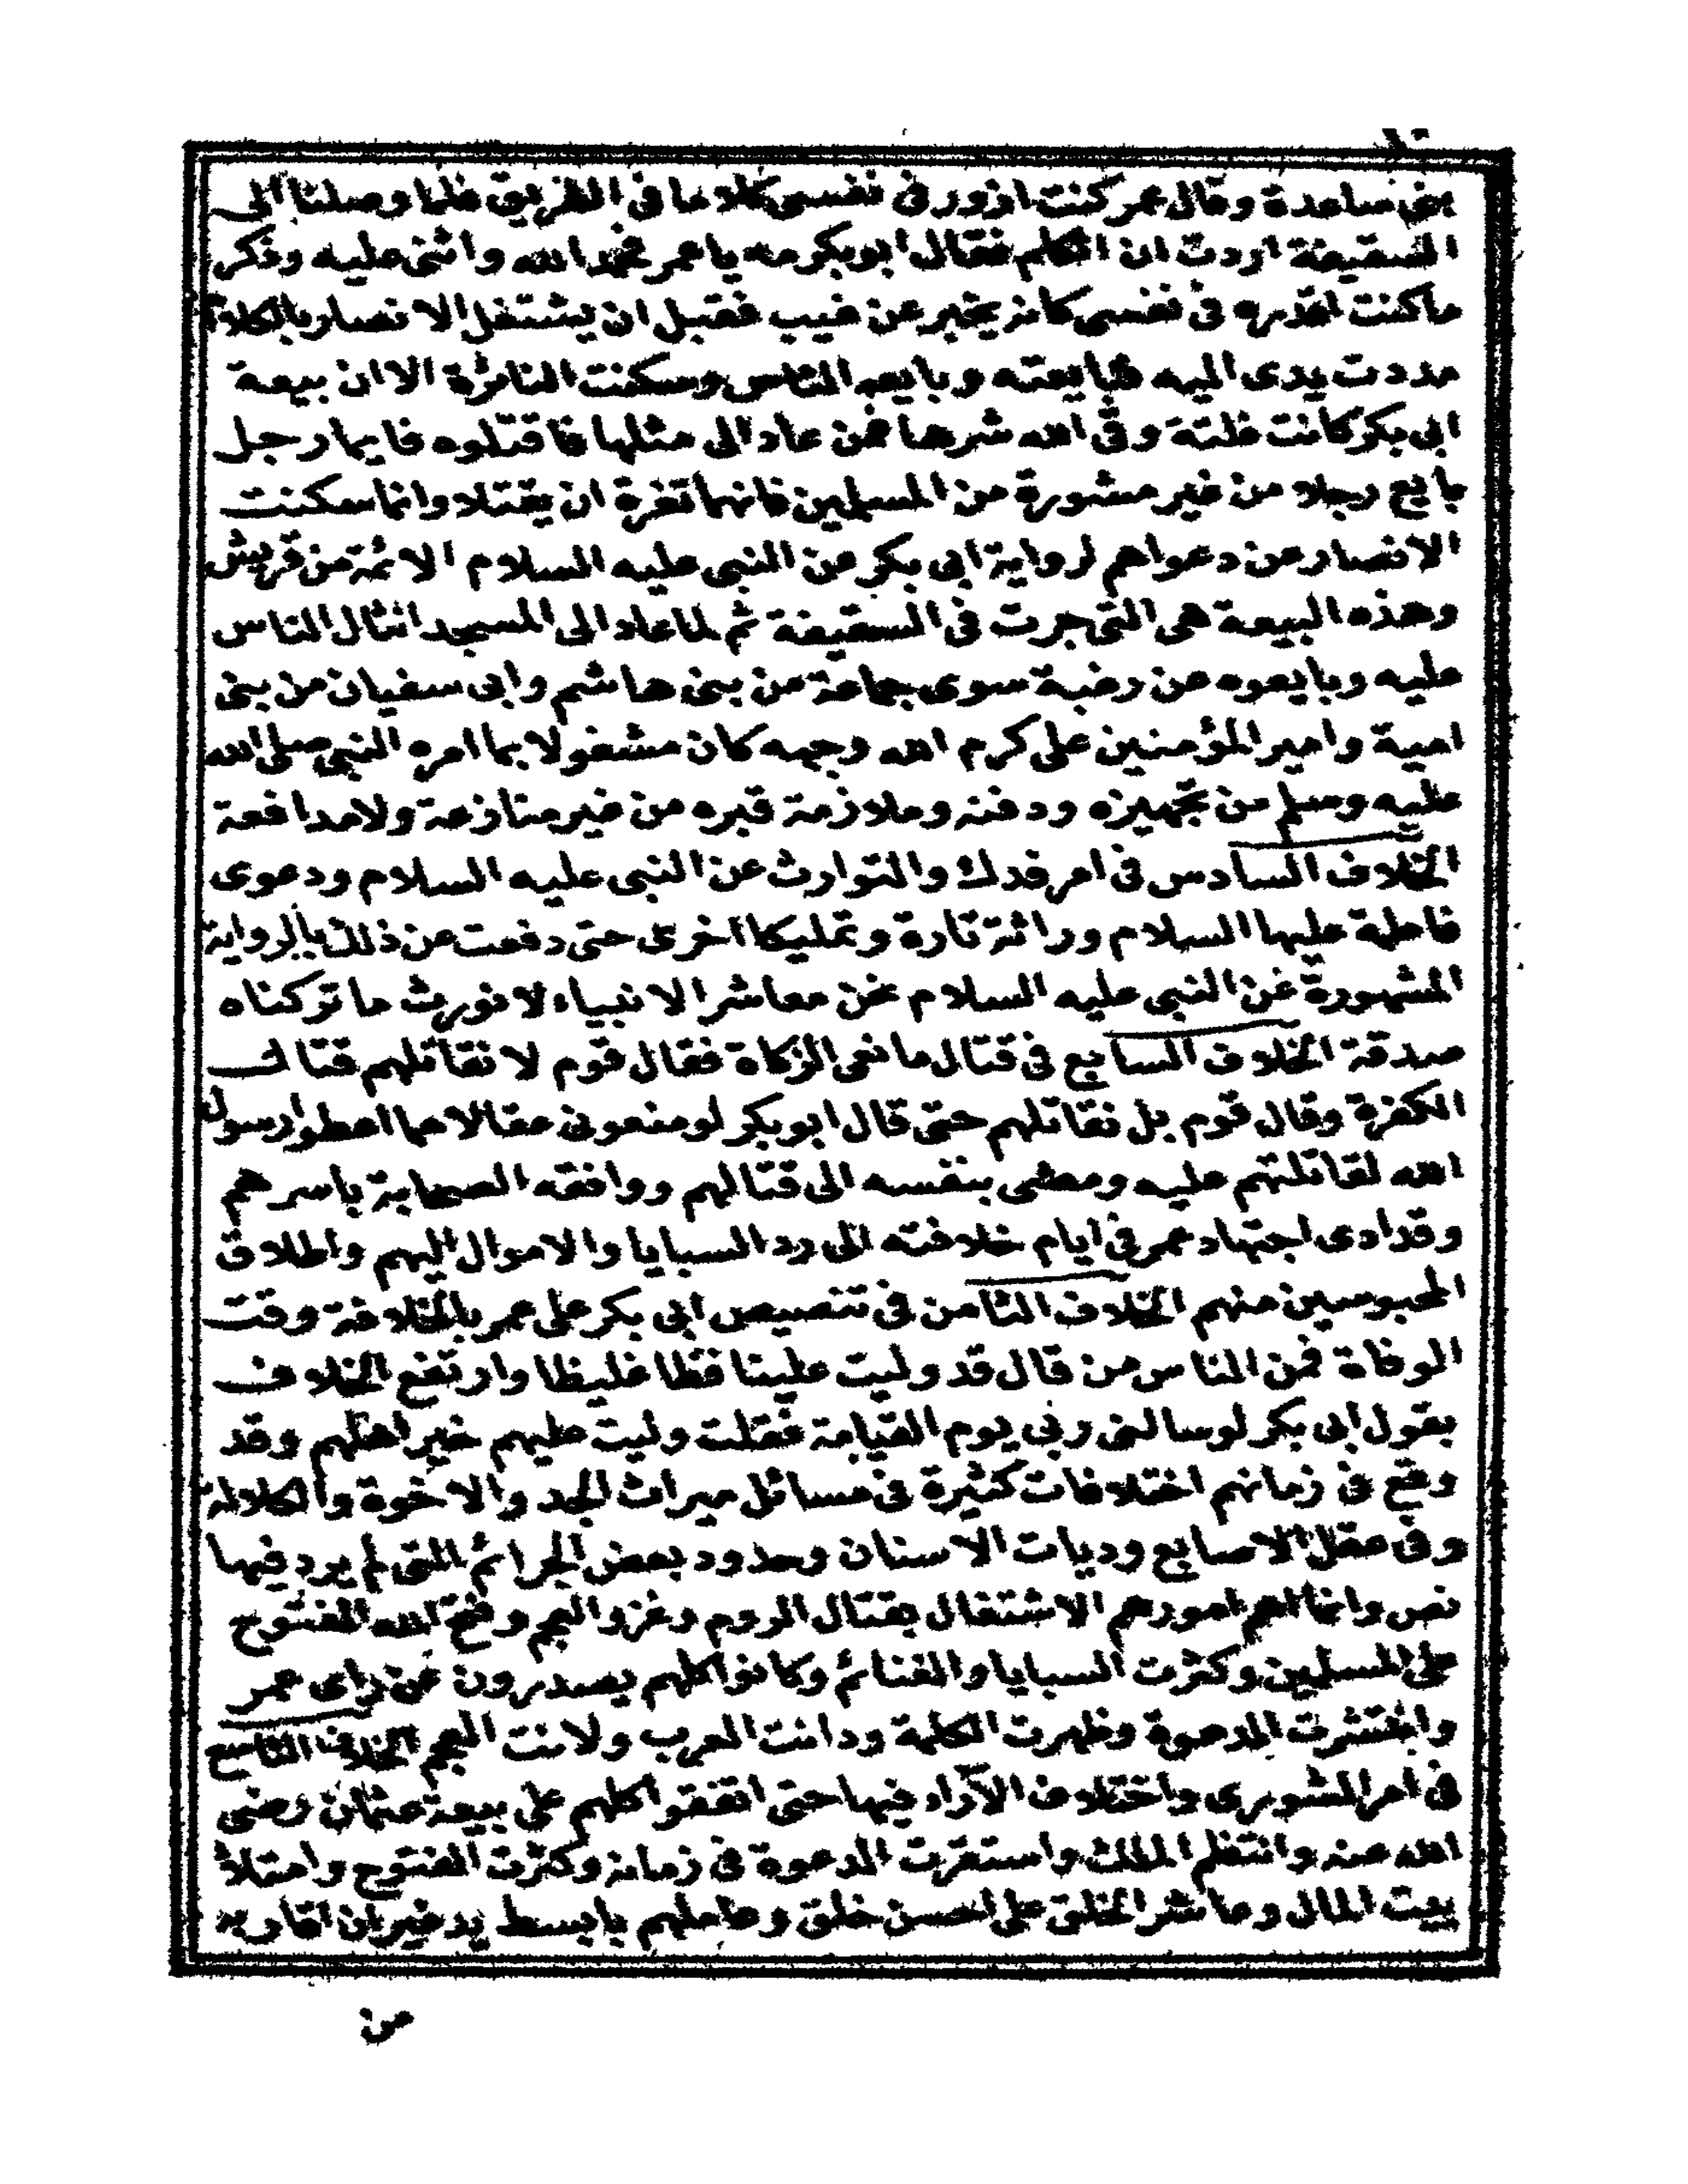 بنى ساعدة وقال عمر كنت ازور فى نفسى كلاما فى الطريق فلما وصلنا الى
السقيفة اردت ان اتكلم فقال ابو بكر مه يا عمر فحمد الله واثنى عليه وذكر
ما كنت اقدره فى نفسى كانه يخبر عن غيب فقبل ان يشتغل الانصار بالكلام
مددت يدى اليه فبايعته وبايعه الناس وسكنت النائرة الا ان بيعة
ابى بكر كانت فلتة وقى الله شرها فمن عاد الى مثلها فاقتلوه فايما رجل
بايع رجلا من غير مشورة من المسلمين فانهما تغرة ان يقتلا وانما سكنت
الانصار عن دعواهم لرواية ابى بكر عن النبى عليه السلام الائمة من قريش
وهذه البيعة هى التى جرت فى السقيفة ثم لما عاد الى المسجد انثال الناس
عليه وبايعوه عن رغبة سوى جماعة من بنى هاشم وابى سفيان من بنى
امية وامير المؤمنين على كرم الله وجهه كان مشغولا بما امره النبى صلى الله
عليه وسلم من تجهيزه ودفنه وملازمة قبره من غير منازعة ولا مدافعة
الخلاف السادس فى امر فدك والتوارث عن النبى عليه السلام ودعوى
فاطمة عليها السلام وراثة تارة وتمليكا اخرى حتى دفعت عن ذلك بالرواية
المشهورة عن النبى عليه السلام نحن معاشر الانبياء لا نورث ما تركناه
صدقة الخلاف السابع فى قتال مانعى الزكاة فقال قوم لا نقاتلهم قتال
الكفرة وقال قوم بل نقاتلهم حتى قال ابو بكر لو منعونى عقالا مما اعطوا رسول
الله لقاتلتهم عليه ومضى بنفسه الى قتالهم ووافقه الصحابة باسرهم
وقد ادى اجتهاد عمر فى ايام خلافته الى رد السبايا والاموال اليهم واطلاق
المحبوسين منهم الخلاف الثامن فى تنصيص ابى بكر على عمر بالخلافة وقت
الوفاة فمن الناس من قال قد وليت علينا فظا غليظا وارتفع الخلاف
بقول ابى بكر لو سالنى ربى يوم القيامة فقلت وليت عليهم خير اهلهم وقد
وقع فى زمانهم اختلافات كثيرة فى مسائل ميراث الجد والاخوة والكلالة
وفى عقل الاصابع وديات الاسنان وحدود بعض الجرائم التى لم يرد فيها
نص وانما اهم امورهم الاشتغال بقتال الروم وغزو العجم وفتح الله الفتوح
على المسلمين وكثرت السبايا والغنائم وكانوا كلهم يصدرون عن راى عمر
وانتشرت الدعوة وظهرت الكلمة ودانت العرب ولانت العجم الخلاف التاسع
فى امر الشورى واختلاف الآراء فيها حتى اتفقوا كلهم على بيعة عثمان رضى
الله عنه وانتظم الملك واستقرت الدعوة فى زمانه وكثرت الفتوح وامتلأ
بيت المال وعاشر الخلق على احسن خلق وعاملهم بابسط يد غير ان اقاربه
من